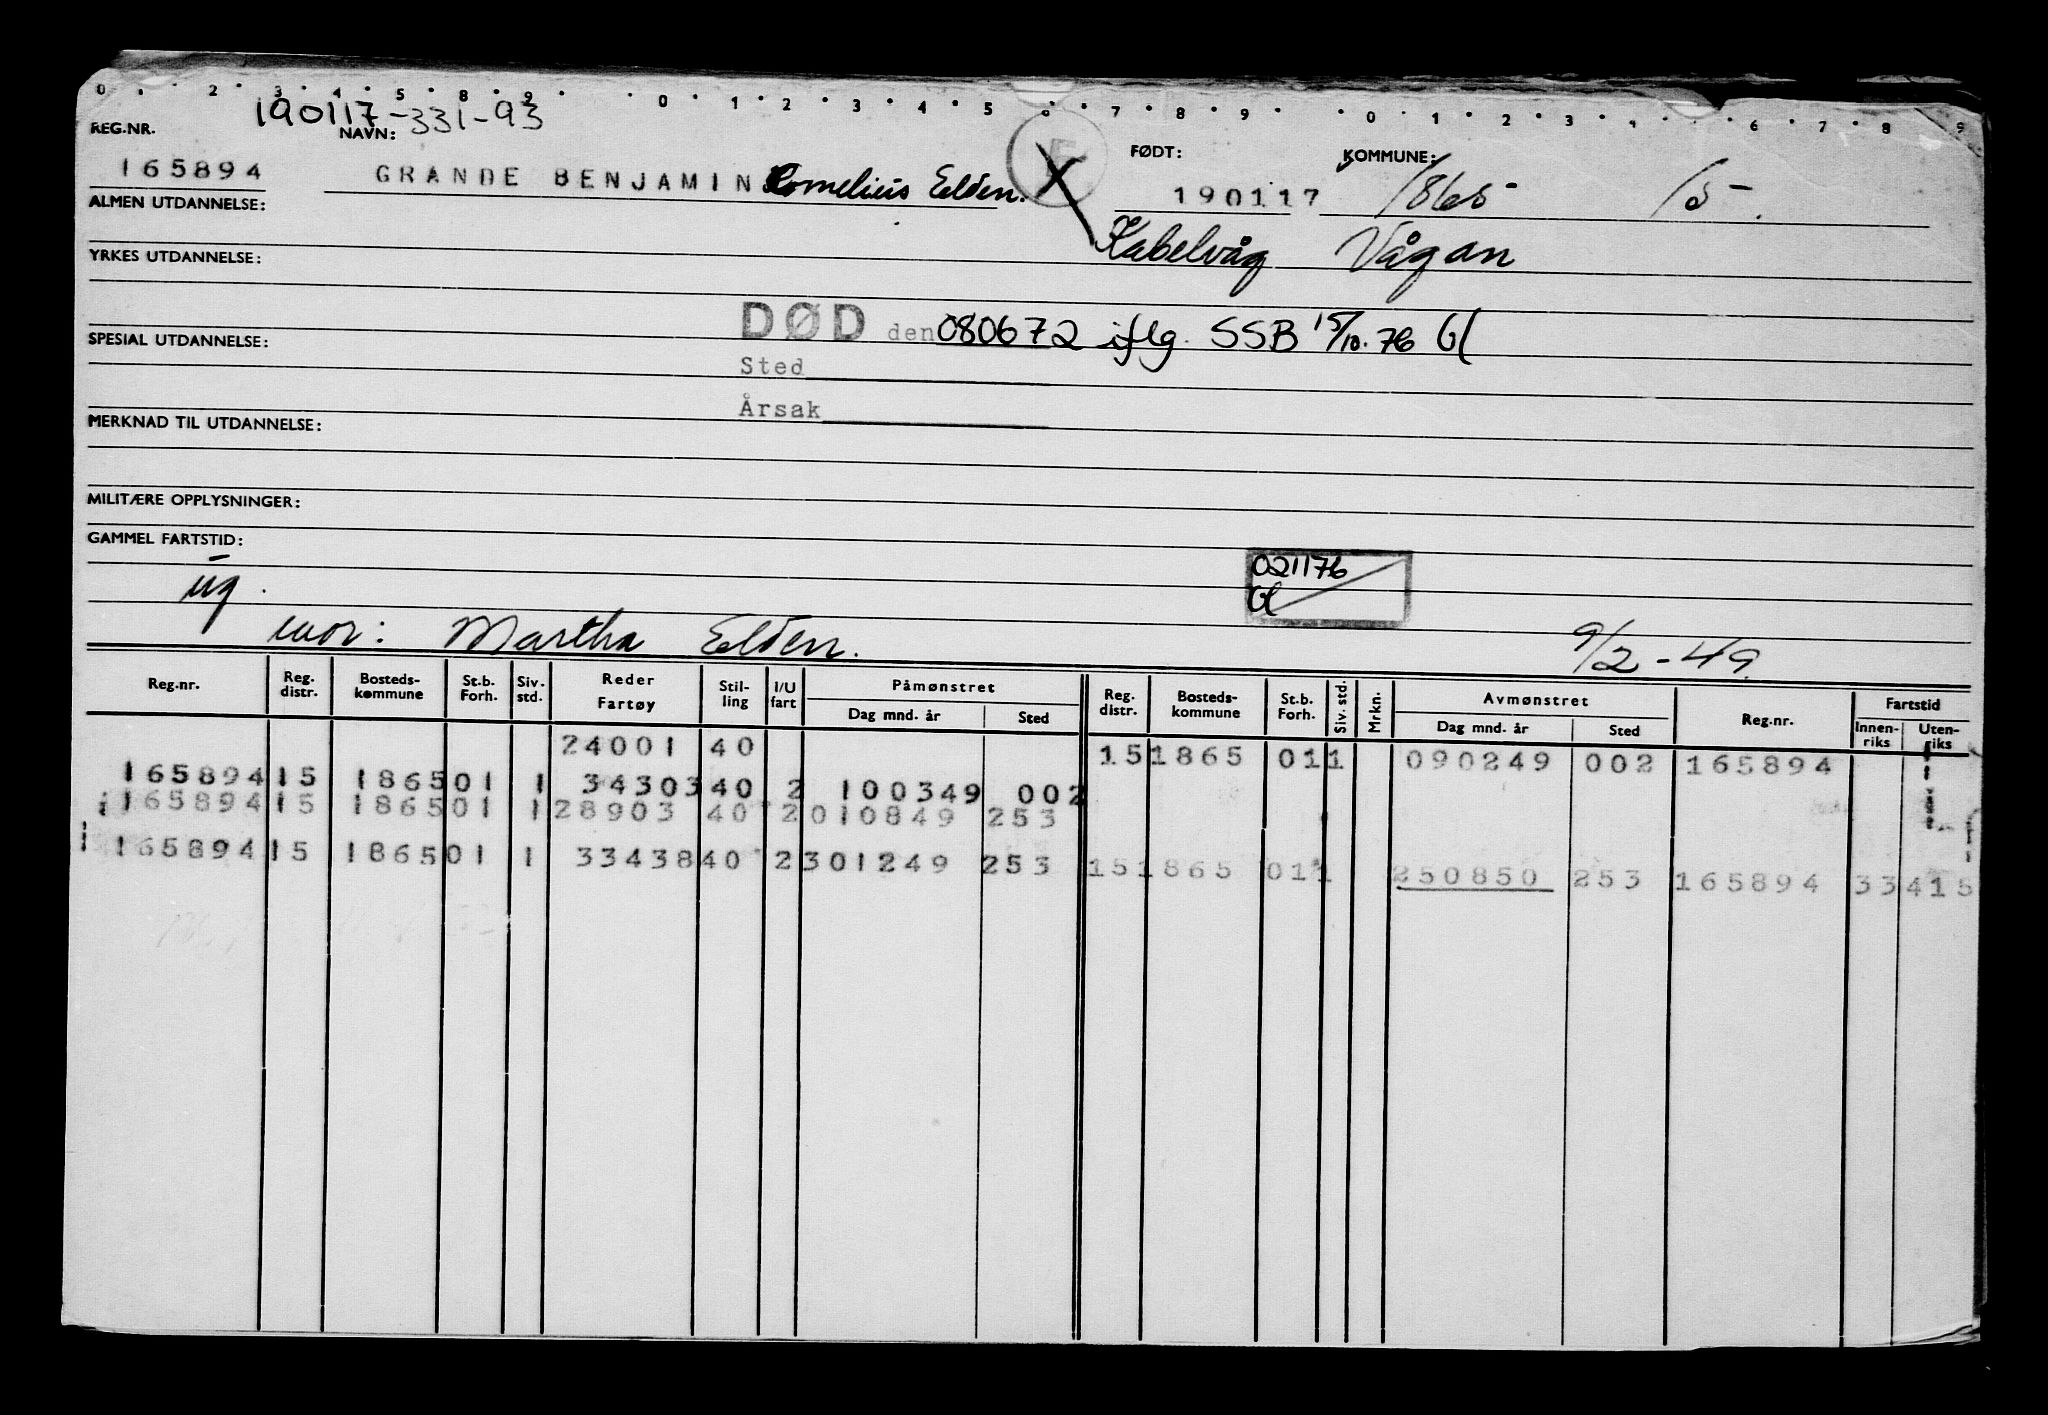 0 . 2 . 3 . 4 . 5 . 8 . 9 . . 0 . 1 . 2 . 3 . 4 . 5 . 6 . 7 . 8 . 9 . . 0 . 1 . 2 . 3 . 4 . . 6 . 7 . 8 . 9
190117-331-93
REG.NR. NAVN: FØDT: KOMMUNE:
165894 GRANDE BENJAMIN Cornelius Elden. 190117 1865 15.
ALMEN UTDANNELSE:
Kabelvåg Vågan
YRKES UTDANNELSE:
DØD den 080672 iflg. SSB 15/10.76 Gl
SPESIAL UTDANNELSE:
Sted
Årsak
MERKNAD TIL UTDANNELSE:
MILITÆRE OPPLYSNINGER:
GAMMEL FARTSTID:
021176
Gl
ug.
mor: Martha Elden. 9/2-49.
Reg.nr. Reg. distr. Bosteds-kommune St.b. Forh. Siv. std. Reder Fartøy Stil-ling I/U fart Påmønstret Dag mnd. år Sted Reg. distr. Bosteds-kommune St.b. Forh. Siv. std. Mrkn. Avmønstret Dag mnd. år Sted Reg.nr. Fartstid Innen-riks Uten-riks
24001 40 15 1865 01 1 090249 002 165894
165894 15 1865 01 1 34303 40 2 100349 002
165894 15 1865 01 1 28903 40 2 010849 253
165894 15 1865 01 1 33438 40 2 301249 253 15 1865 01 1 250850 253 165894 33 415